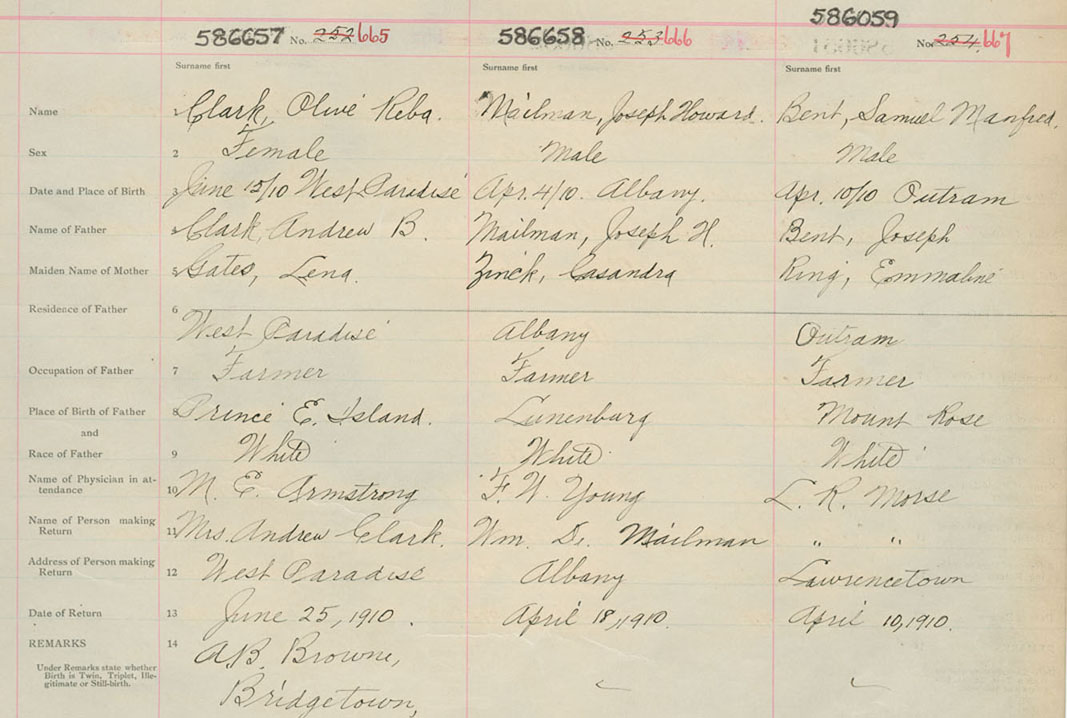 586059
586657 No. 252 665 586658 No. 253 666 No. 254 667
Surname first Surname first Surname first
Name 1 Clark, Olive Reba. Mailman, Joseph Howard. Bent, Samuel Manfred.
Sex 2 Female Male Male
Date and Place of Birth 3 June 15/10 West Paradise Apr. 4/10. Albany. Apr. 10/10 Outram
Name of Father 4 Clark, Andrew B. Mailman, Joseph H. Bent, Joseph
Maiden Name of Mother 5 Gates, Lena. Zinck, Casandra Ring, Emmaline
Residence of Father 6
West Paradise Albany Outram
Occupation of Father 7 Farmer Farmer Farmer
Place of Birth of Father 8 Prince E. Island. Lunenburg Mount Rose
and
Race of Father 9 White White White
Name of Physician in at-
tendance 10 M. E. Armstrong F. W. Young L. R. Morse
Name of Person making
Return 11 Mrs. Andrew Clark. Wm. Mailman " "
Address of Person making
Return 12 West Paradise Albany Lawrencetown
Date of Return 13 June 25, 1910. April 18, 1910. April 10, 1910.
REMARKS 14 A.B. Browne,
Under Remarks state whether
Birth is Twin, Triplet, Ille-
gitimate or Still-birth.
Bridgetown,